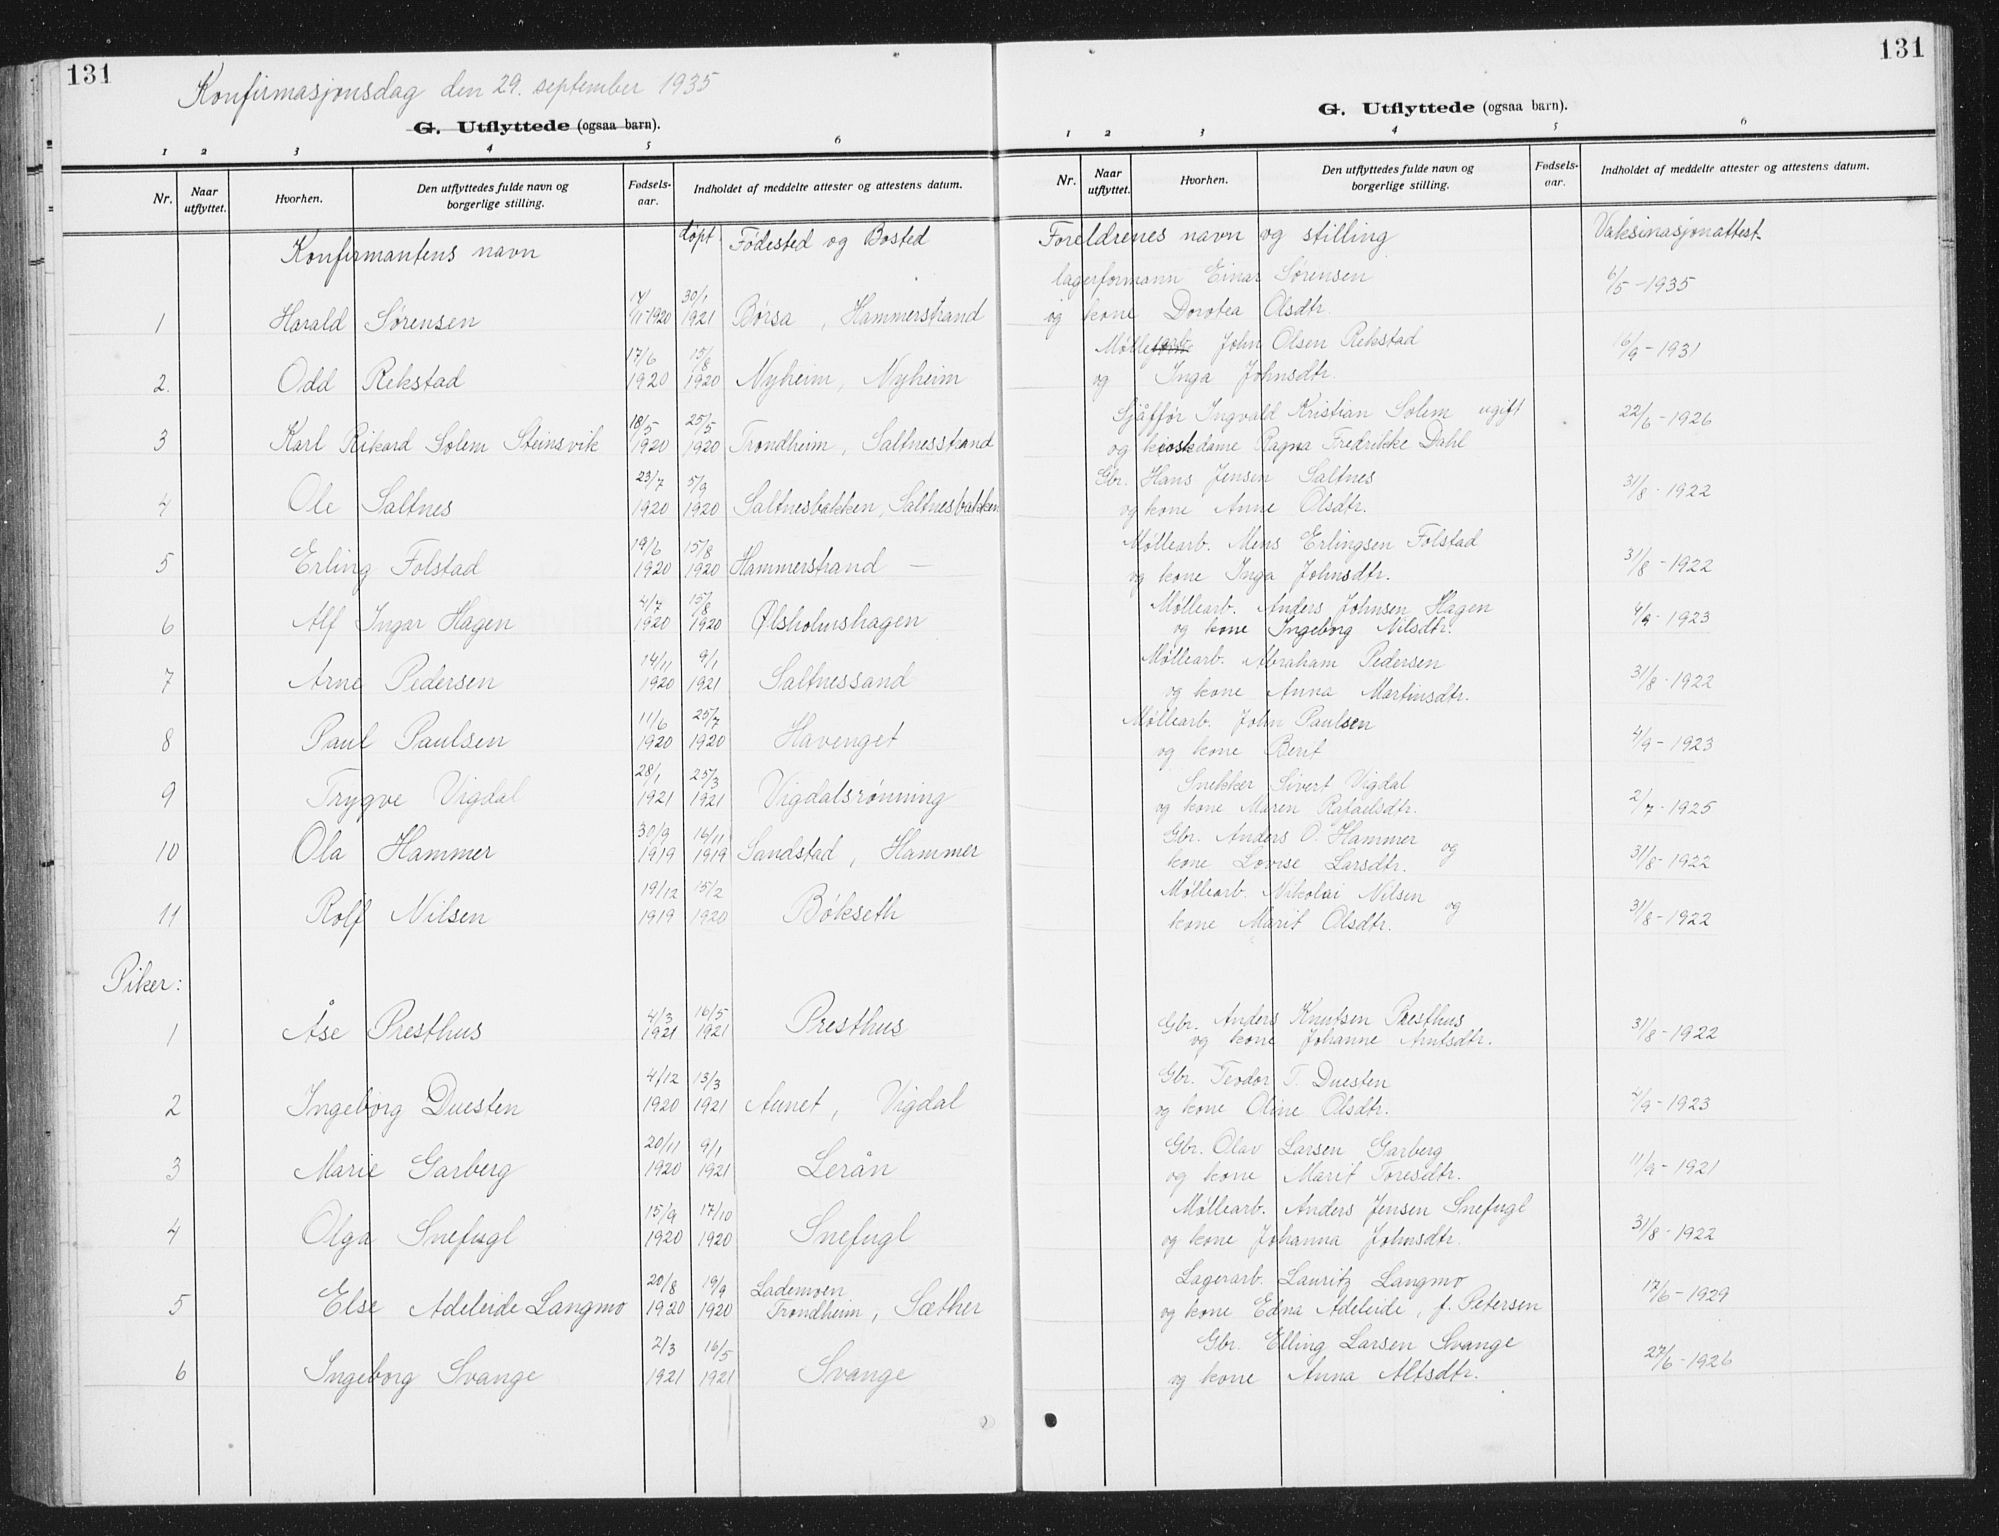 131
Konfirmasjonsdag den 29. september 1935
G. Utflyttede (ogsaa barn).
1 2 3 4 5 6
Nr. Naar utflyttet. Hvorhen. Den utflyttedes fulde navn og borgerlige stilling. Fødsels-aar. Indholdet af meddelte attester og attestens datum.
Konfirmantens navn døpt. Fødested og Bosted
1 Harald Sørensen 1920 30/1 1921 Børsa, Hammerstrand
2. Odd Rekstad 17/6 1920 15/8 1920 Nyheim, Nyheim
3 Karl Rikard Solem Steinsvik 18/5 1920 25/5 1920 Trondheim, Saltnesstrand
4 Ole Saltnes 23/7 1920 5/9 1920 Saltnesbakken, Saltnesbakken
5 Erling Folstad 19/6 1920 15/8 1920 Hammerstrand —
6 Alf Ingar Hagen 4/7 1920 15/8 1920 Ølsholmshagen
7 Arne Pedersen 14/11 1920 9/1 1921 Saltnessand
8 Paul Paulsen 11/6 1920 25/7 1920 Havenget
9 Trygve Vigdal 28/1 1921 25/3 1921 Vigdalsrønning
10 Ola Hammer 30/9 1919 16/11 1919 Sandstad, Hammer
11 Rolf Nilsen 19/12 1919 15/2 1920 Bøkseth
Piker:
1 Åse Presthus 4/3 1921 16/5 1921 Presthus
2 Ingeborg Duesten 4/12 1920 13/3 1921 Aunet, Vigdal
3 Marie Garberg 20/11 1920 9/1 1921 Lerån
4 Olga Snefugl 15/9 1920 17/10 1920 Snefugl
5 Else Adeleide Langmo 20/8 1920 19/9 1920 Lademoen Trondheim, Sæther
6 Ingeborg Svange 2/3 1921 16/5 1921 Svange
131
G. Utflyttede (ogsaa barn).
1 2 3 4 5 6
Nr. Naar utflyttet. Hvorhen. Den utflyttedes fulde navn og borgerlige stilling. Fødsels-aar. Indholdet af meddelte attester og attestens datum.
Foreldrenes navn og stilling Vaksinasjonattest
lagerformann Einar Sørensen 6/5-1935
og kone Dorotea Olsdtr.
Møllearb. John Olsen Rekstad 16/9-1931
og Inga Johnsdtr.
Sjåfför Ingvald Kristian Solem ugift 22/6-1926
og kioskdame Ragna Fredrikke Dahl
Gbr. Hans Jensen Saltnes 31/8-1922
og kone Anne Olsdtr.
Møllearb. Mens Erlingsen Folstad 31/8-1922
og kone Inga Johnsdtr.
Møllearb. Anders Johnsen Hagen 4/9-1923
og kone Ingeborg Nilsdtr.
Møllearb. Abraham Pedersen 31/8-1922
og kone Anna Martinsdtr.
Møllearb. John Paulsen 4/9-1923
og kone Berit
Snekker Sivert Vigdal 2/7-1925
og kone Maren Rafaelsdtr.
Gbr. Anders O. Hammer og 31/8-1922
kone Lovise Larsdtr.
Møllearb. Nikolai Nilsen og 31/8-1922
kone Marit Olsdtr.
Gbr. Anders Knutsen Presthus 31/8-1922
og kone Johanne Arntsdtr.
Gbr. Teodor T. Duesten 4/9-1923
og kone Oline Olsdtr.
Gbr. Olav Larsen Garberg 11/9-1921
og kone Marit Toresdtr.
Møllearb. Anders Jensen Snefugl 31/8-1922
og kone Johanna Johnsdtr.
Lagerarb. Lauritz Langmo 17/6-1929
og kone Edna Adeleide, f. Petersen
Gbr. Elling Larsen Svange 27/6-1926
og kone Anna Altsdtr.